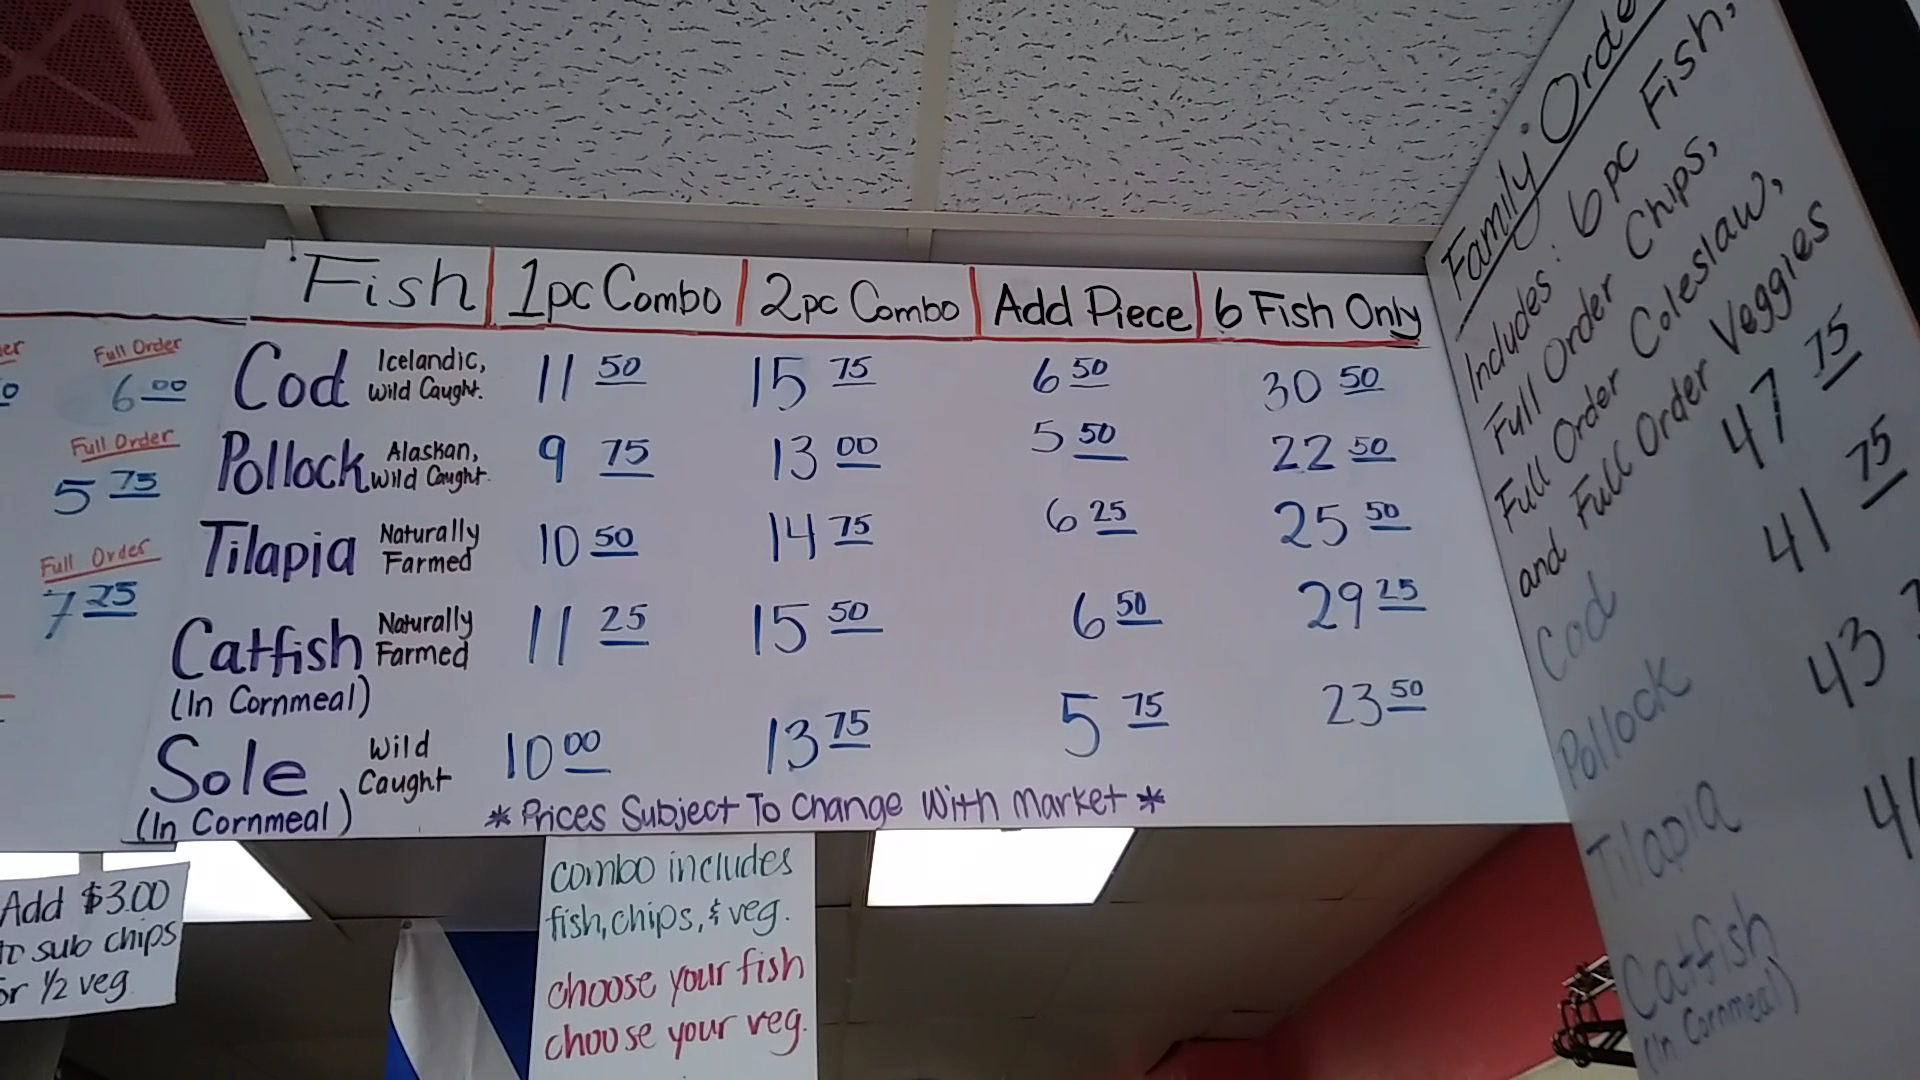 Fish 1pc Combo 2pc Combo Add Piece 6 Fish Only
Cod Icelandic, Wild Caught. 11 50 15 75 6 50 30 50
Pollock Alaskan, Wild Caught. 9 75 13 00 5 50 22 50
Tilapia Naturally Farmed 10 50 14 75 6 25 25 50
Catfish Naturally Farmed 11 25 15 50 6 50 29 25
(In Cornmeal)
Sole Wild Caught 10 00 13 75 5 75 23 50
(In Cornmeal)
* Prices Subject To Change With Market *
Full Order
6 00
Full Order
5 75
Full Order
7 25
Add $3.00
to sub chips
or 1/2 veg
combo includes
fish, chips, & veg.
choose your fish
choose your veg.
Family Orde
Includes: 6pc Fish,
Full Order Chips,
Full Order Coleslaw,
and Full Order Veggies
Cod 47 75
Pollock 41 75
Tilapia 43
Catfish
(In Cornmeal)